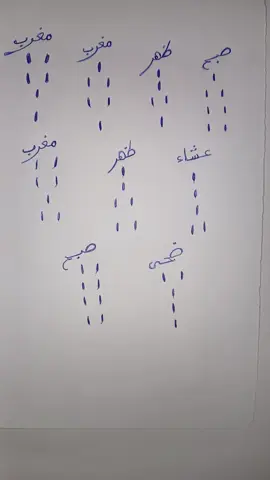 صبح ظهر مغرب مغرب
عشاء ظهر مغرب
ضحى صبح